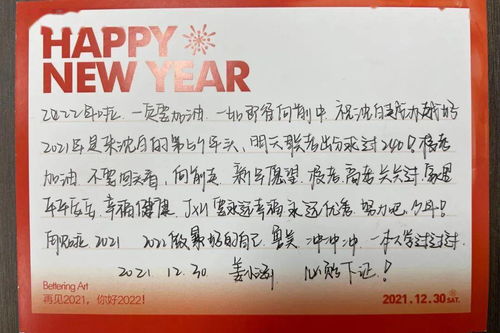 HAPPY
NEW YEAR
2022年啦 一页要加油 一如既往向前冲 祝沈日越办越好
2021年是来沈日的第 年头，明天联考出 过240！校考
加油 不要回头看，向前走 新年愿望 校考高考关关过 家里
平平安安，幸福健康，JXH要永远幸福永远优秀 努力吧，
再见啦 2021 2022做最好的自己 冲冲冲 一本大学过过过
2021.12.30 姜 此贴下证！
Bettering Art
再见2021，你好2022！
2021.12.30 SAT.